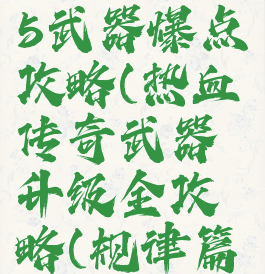 5武器爆点
攻略(热血
传奇武器
升级全攻
略(规律篇